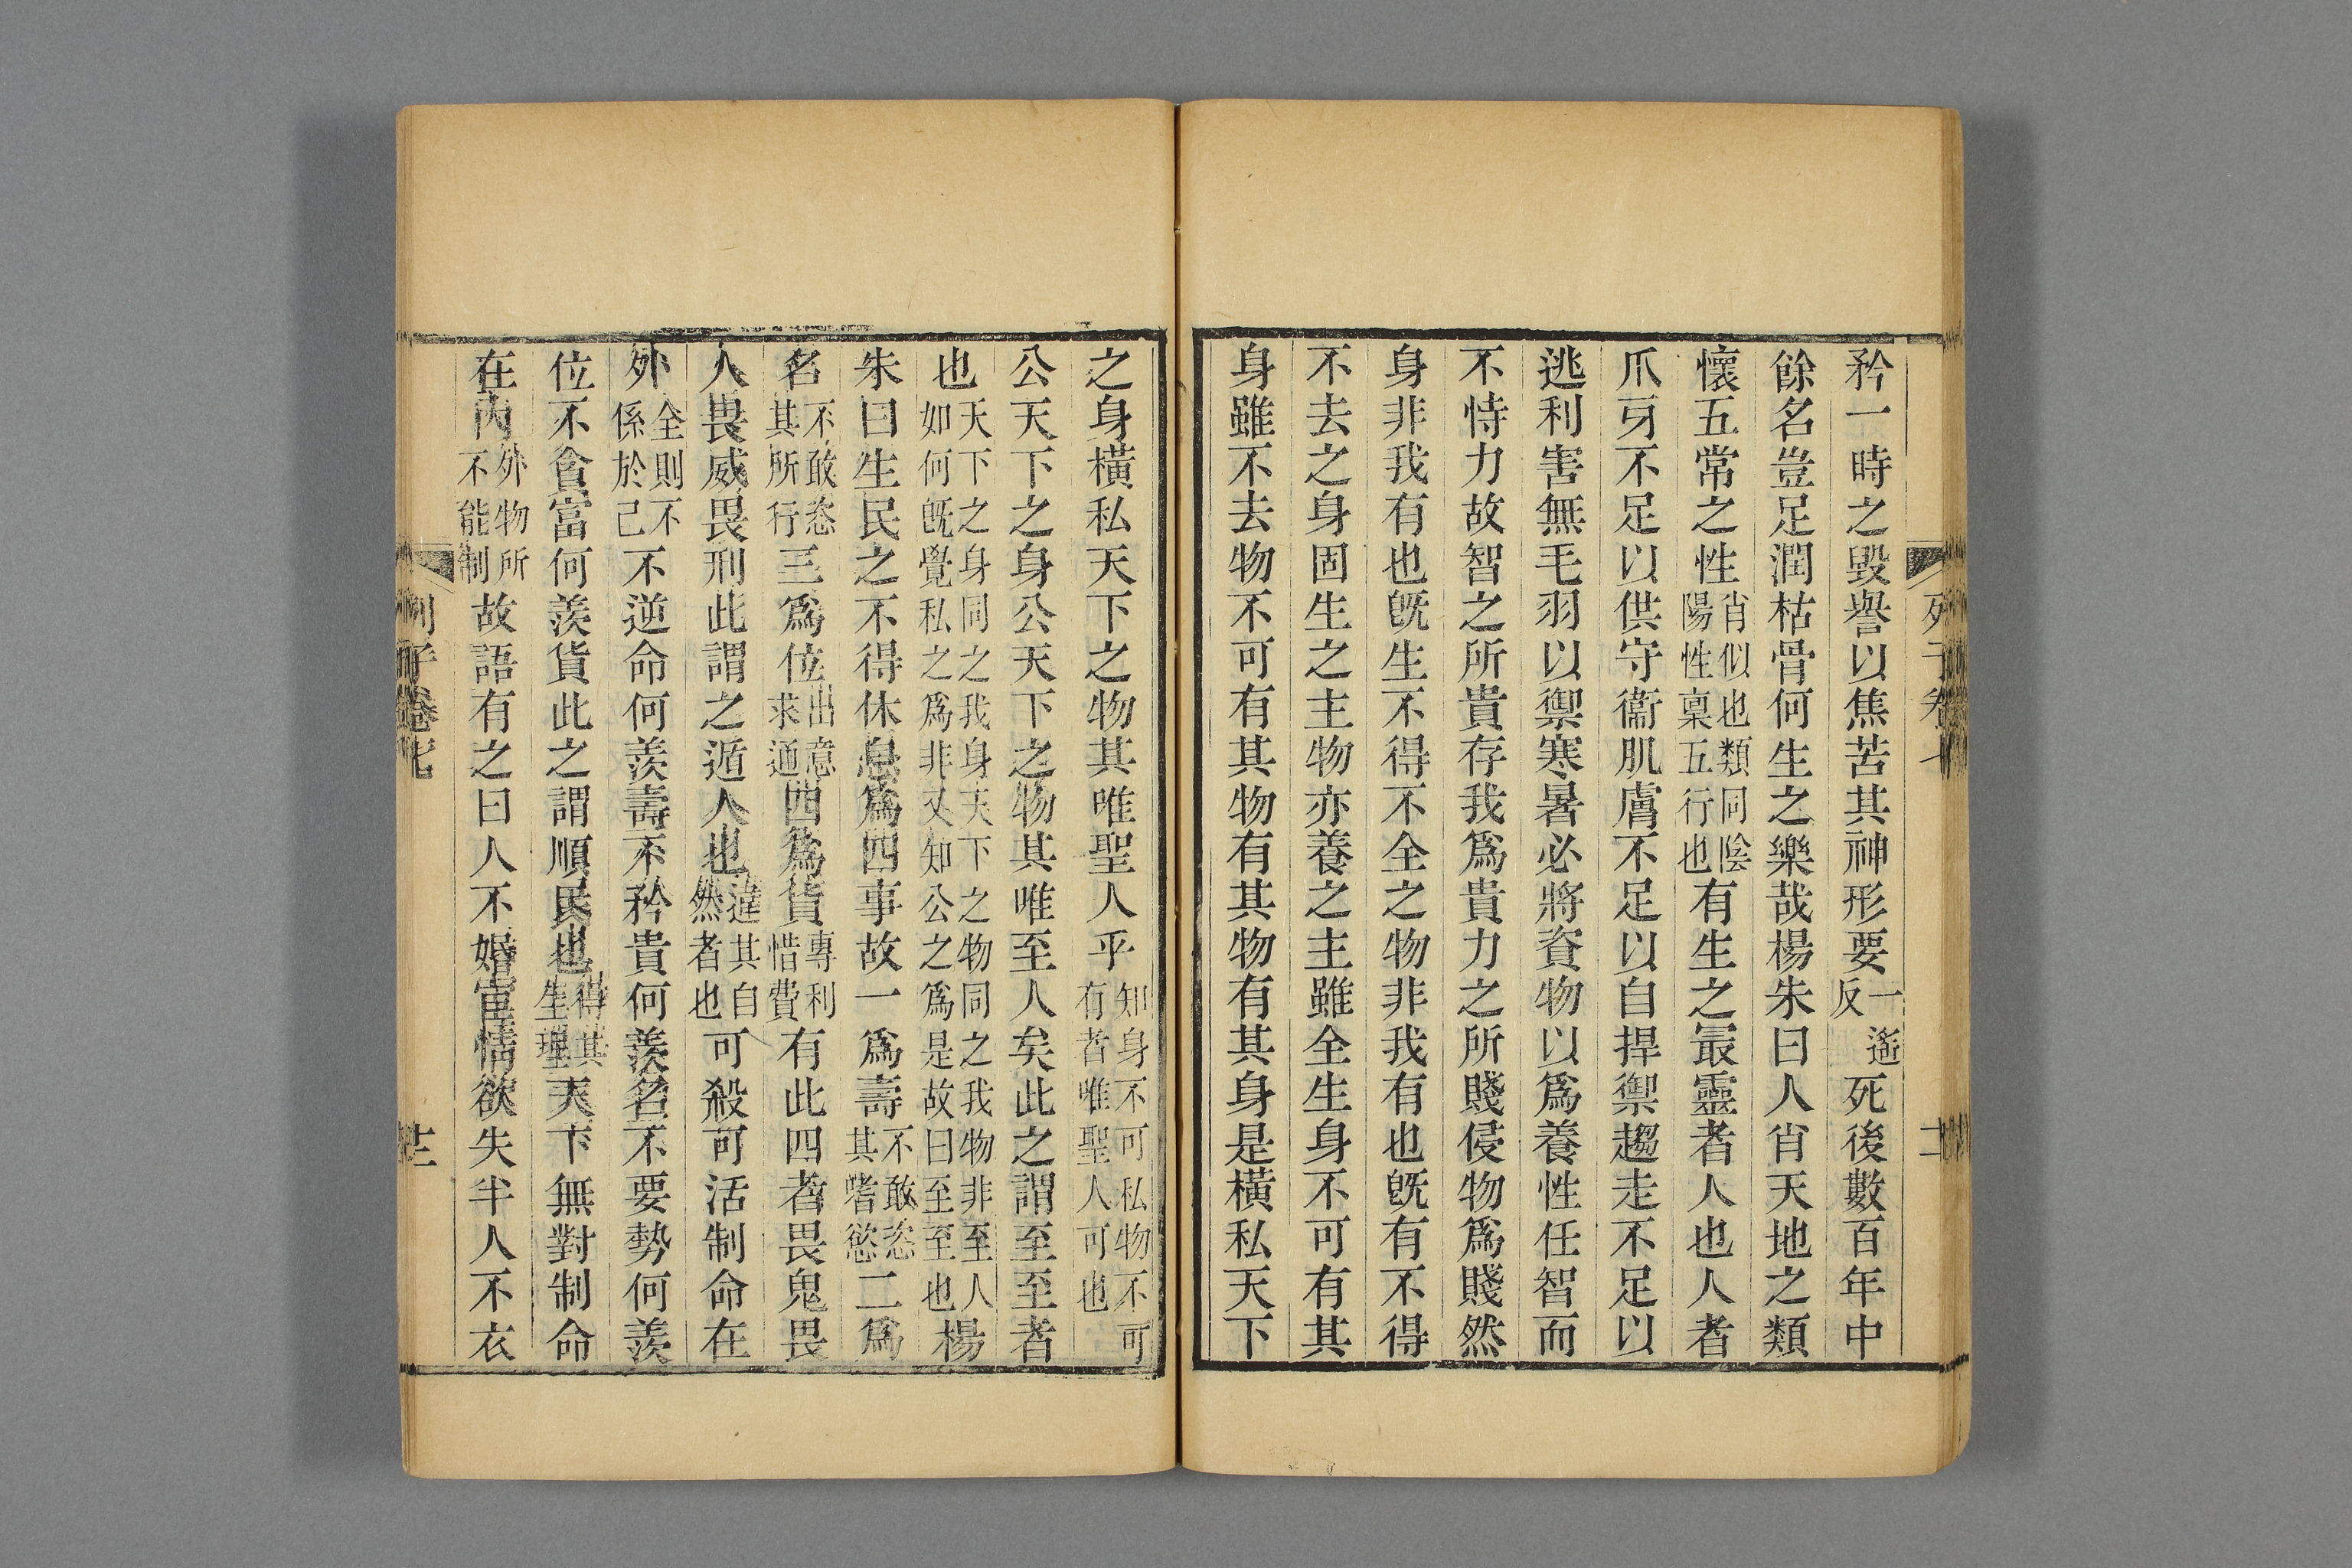 矜一時之毀譽以焦苦其神形要一遙反死後數百年中
餘名豈足潤枯骨何生之樂哉楊朱曰人肖天地之類
懷五常之性肖似也類同陰陽性稟五行也有生之最靈者人也人者
爪牙不足以供守衞肌膚不足以自捍禦趨走不足以
逃利害無毛羽以禦寒暑必將資物以爲養性任智而
不恃力故智之所貴存我爲貴力之所賤侵物爲賤然
身非我有也旣生不得不全之物非我有也旣有不得
不去之身固生之主物亦養之主雖全生身不可有其
身雖不去物不可有其物有其物有其身是橫私天下
之身橫私天下之物其唯聖人乎知身不可私物不可有者唯聖人可也
公天下之身公天下之物其唯至人矣此之謂至至者
也天下之身同之我身天下之物同之我物非至人如何旣覺私之爲非又知公之爲是故曰至至也楊
朱曰生民之不得休息爲四事故一爲壽不敢恣其嗜慾二爲
名不敢恣其所行三爲位出意求通四爲貨專利惜費有此四者畏鬼畏
人畏威畏刑此謂之遁人也違其自然者也可殺可活制命在
外全則不係於己不逆命何羨壽不矜貴何羨名不要勢何羨
位不貪富何羨貨此之謂順民也得其生理天下無對制命
在內外物所不能制故語有之曰人不婚宦情欲失半人不衣
列子卷七
十二